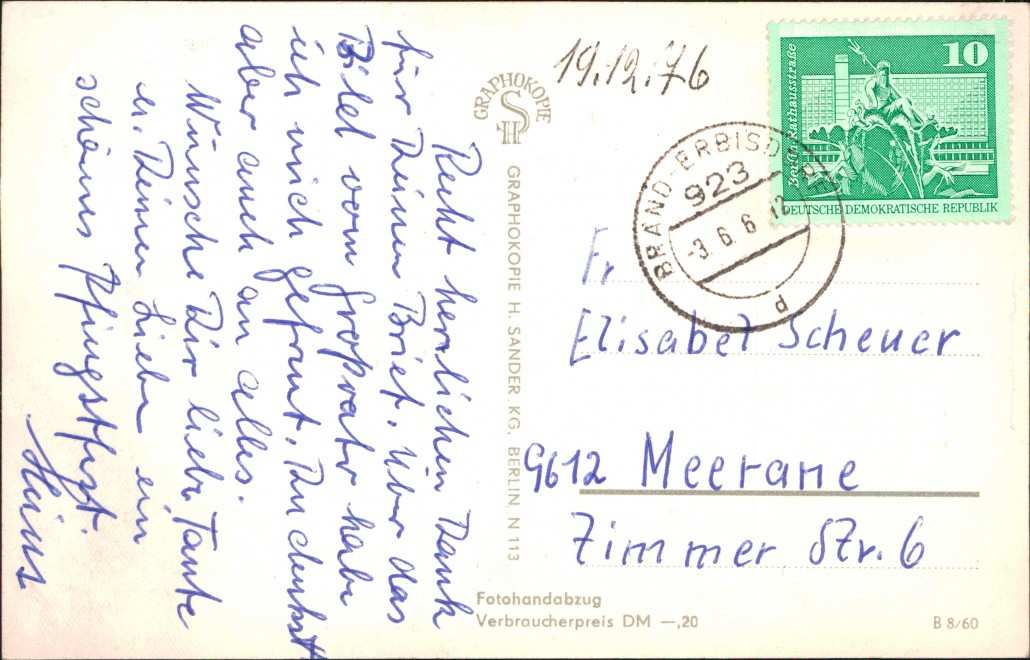 Recht herzlichen Dank
für Deinen Brief. Über das
Bild vom Großvater habe
ich mich gefreut. Du denkst
aber auch an alles.
Wünsche Dir liebe Tante
u. Deinen Lieben ein
schönes Pfingstfest.
19.12.76
GRAPHOKOPIE
SH
GRAPHOKOPIE H. SANDER KG, BERLIN N 113
10
Berlin, Rathausstraße
DEUTSCHE DEMOKRATISCHE REPUBLIK
BRAND-ERBISDORF
923
-3. 6. 6 12
d
Fr
Elisabet Scheuer
9612 Meerane
Zimmer Str. 6
Fotohandabzug
Verbraucherpreis DM —,20
B 8/60